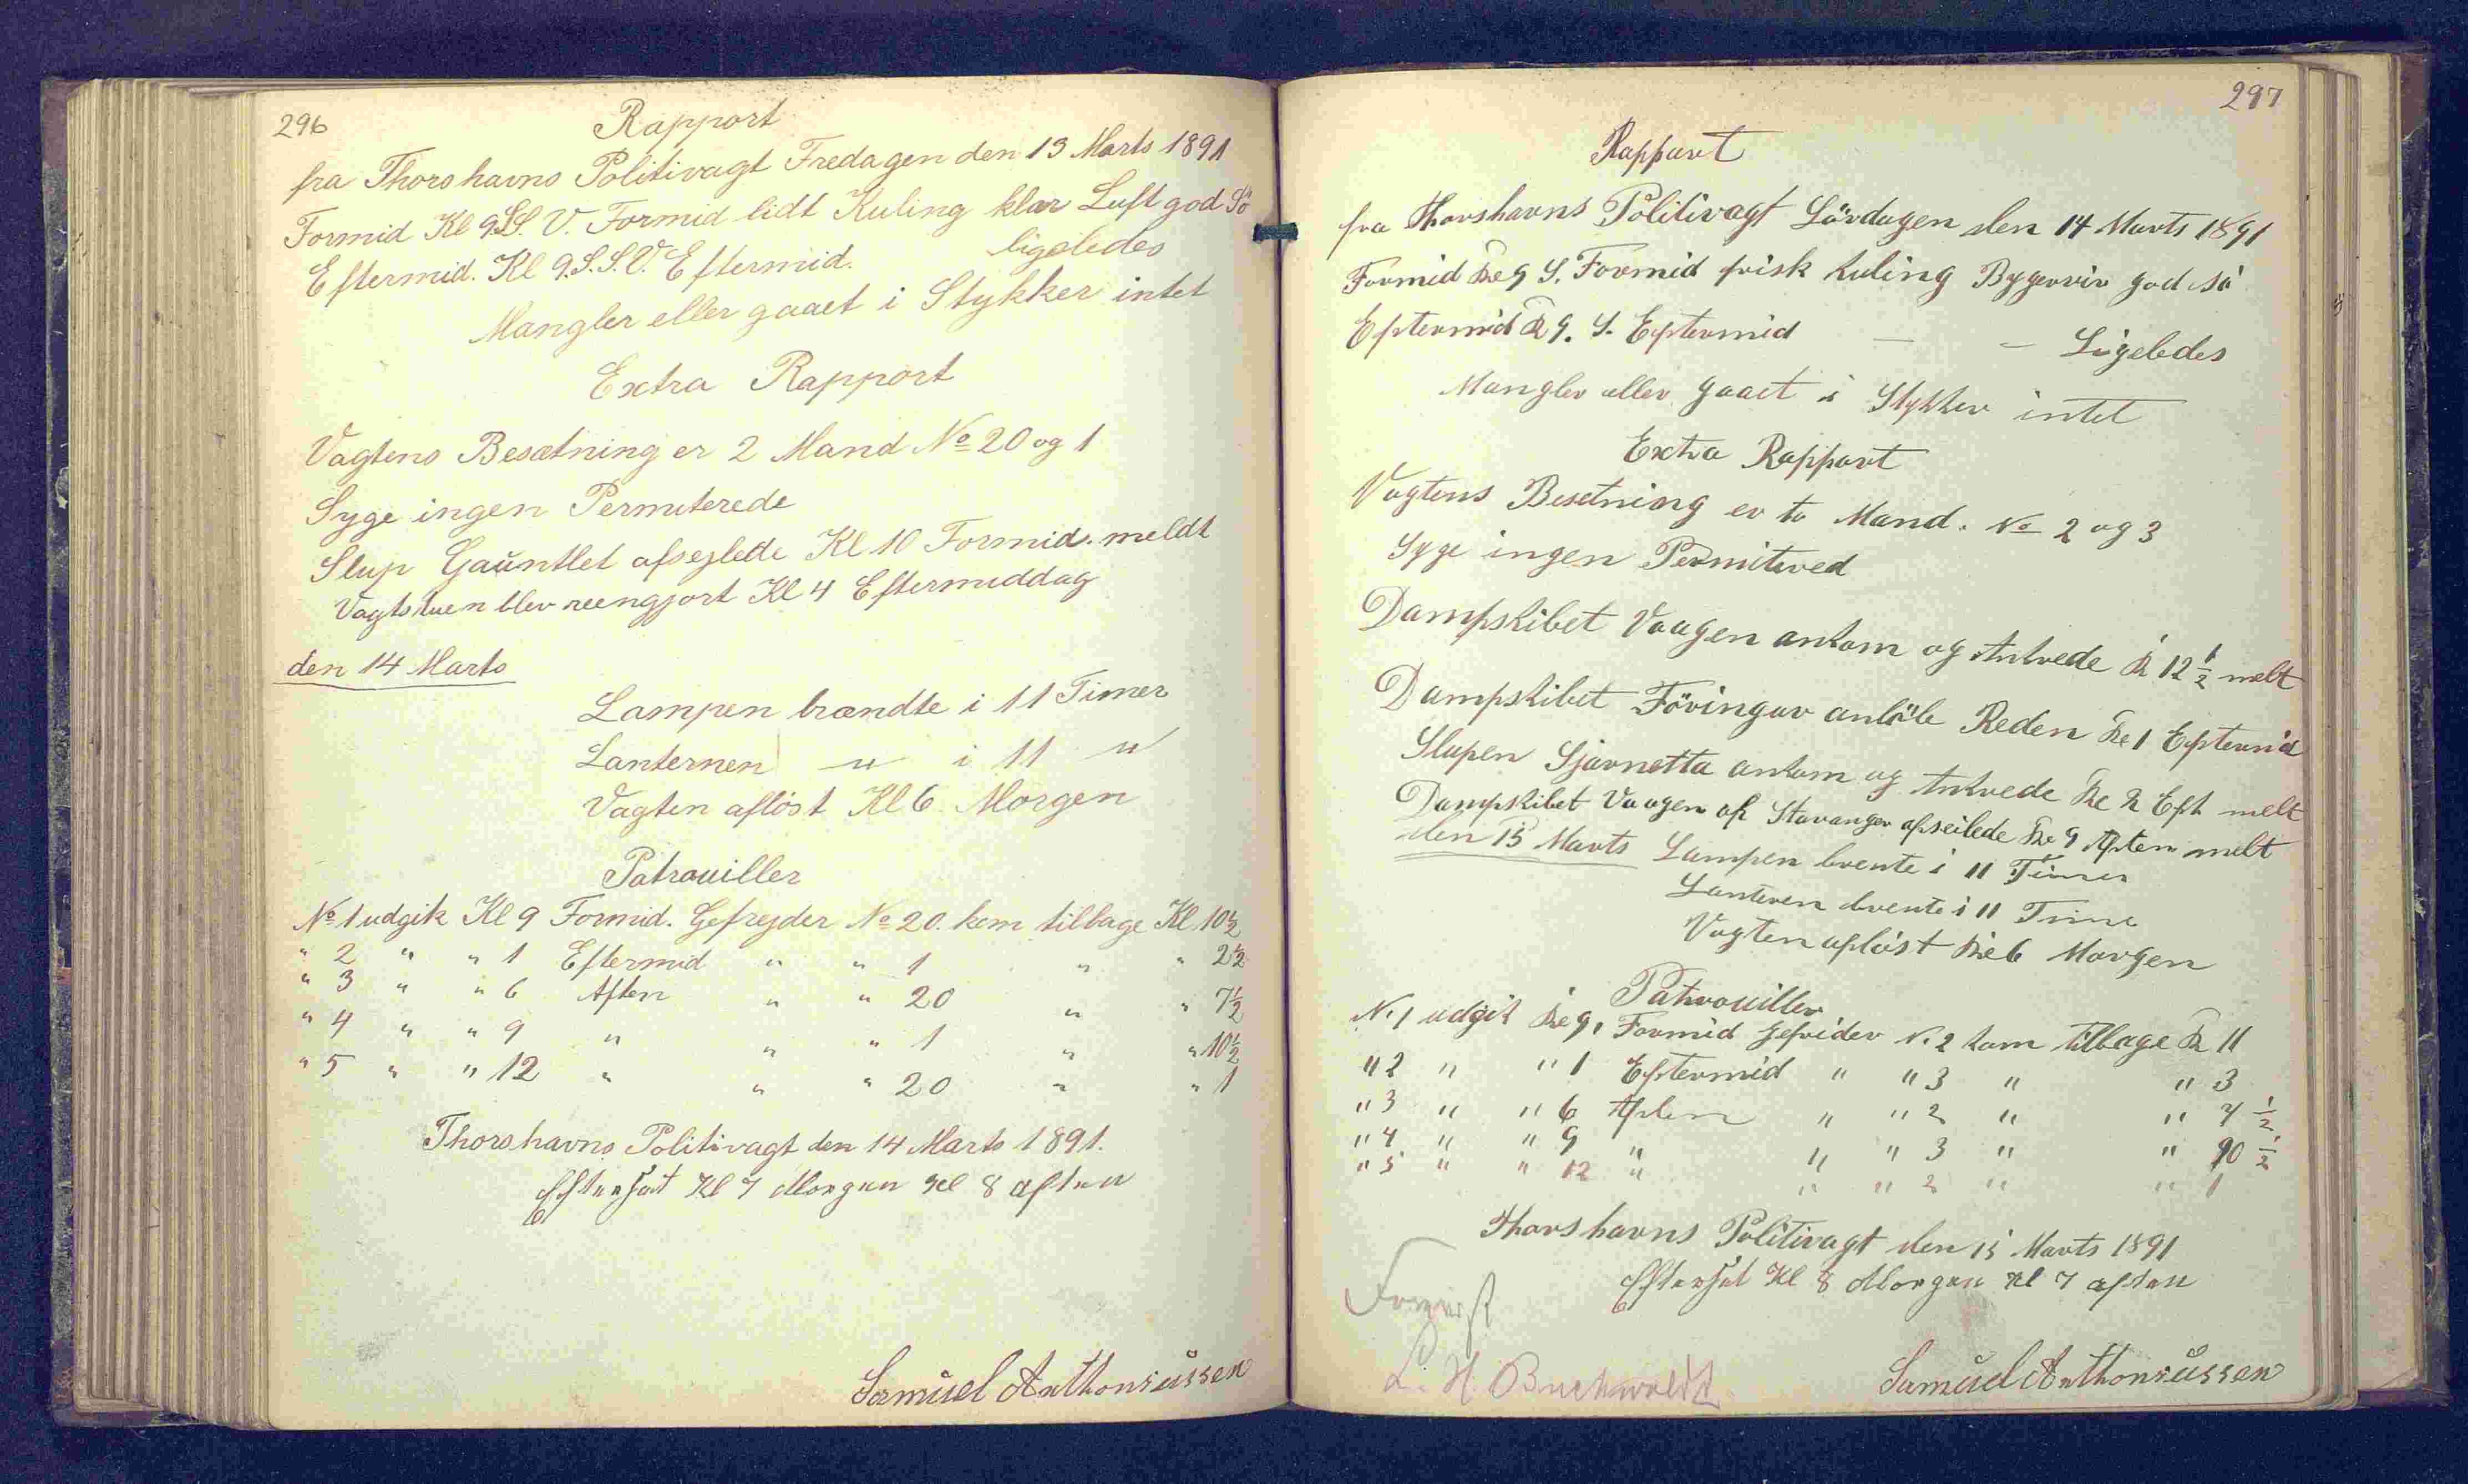 296
Rapport
fra Thorshavns Politivagt Fredagen den 13 Marts 1891
Formid Kl 9. S.S.V. Formid lidt Kuling klar Luft god Sö
Eftermid. Kl 9. S.S.V. Eftermid. ligeledes
Mangler eller gaaet i Stykker intet
Extra Rapport
Vagtens Besætning er 2 Mand No 20 og 1
Syge ingen Permiterede
Slup Gauntlet afsejlede Kl 10 Formid. meldt
Vagtstuen blev reengjort Kl 4 Eftermiddag
den 14 Marts
Lampen brændte i 11 Timer
Lanternen " i 11 "
Vagten aflöst Kl 6 Morgen
Patrouiller
No 1 udgik Kl 9 Formid. Gefrejder No 20. kom tilbage Kl 10½
" 2 " " 1 Eftermid " " 1 " " 2½
" 3 " " 6 Aften " " 20 " " 7½
" 4 " " 9 " " " 1 " " 10½
" 5 " " 12 " " " 20 " " 1
Thorshavns Politivagt den 14 Marts 1891.
Efterset Kl 7 Morgen Kl 8 aften
Samuel Anthoniussen
297
Rapport
fra Thorshavns Politivagt Lördagen den 14 Marts 1891
Formid Kl 9 S. Formid frisk kuling Bygervir god sö
Eftermid Kl 9. S. Eftermid — — Ligeledes
Mangler eller gaaet i Stykker intet
Extra Rapport
Vagtens Besetning er to Mand. No 2 og 3
Syge ingen Permitered
Dampskibet Vaagen ankom og Ankrede Kl 12½ melt
Dampskibet Föringur anlöb Reden Kl 1 Eftermid
Slupen Sjavnetta ankom og Ankrede Kl 2 Eft melt
Dampskibet Vaagen af Stavanger afseilede Kl 9 Aften melt
den 15 Marts Lampen brente i 11 Timer
Lanteren brente i 11 Time
Vagten aflöst Kl 6 Morgen
Patrouiller
N. 1 udgik Kl 9. Formid Gefrider N. 2 kom tilbage Kl 11
" 2 " " 1 Eftermid " " 3 " " 3
" 3 " " 6 Aften " " 2 " " 7½
" 4 " " 9 " " " 3 " " 10½
" 5 " " 12 " " " 2 " " 1
Thorshavns Politivagt den 15 Marts 1891
Efterset Kl 8 Morgen Kl 7 aften
Samuel Anthoniussen
L. H. Buchwaldt